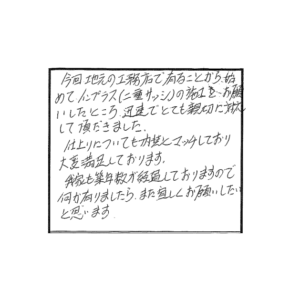 今回地元の工務店で有ることから、始
めてインプラス(二重サッシ)の施工をお願
いしたところ、迅速でとても親切に対応
して頂だきました。
仕上りについても内装とマッチしており
大変満足しております。
我家も築年数が経過しておりますので
何か有りましたら、また宜しくお願いしたい
と思います。